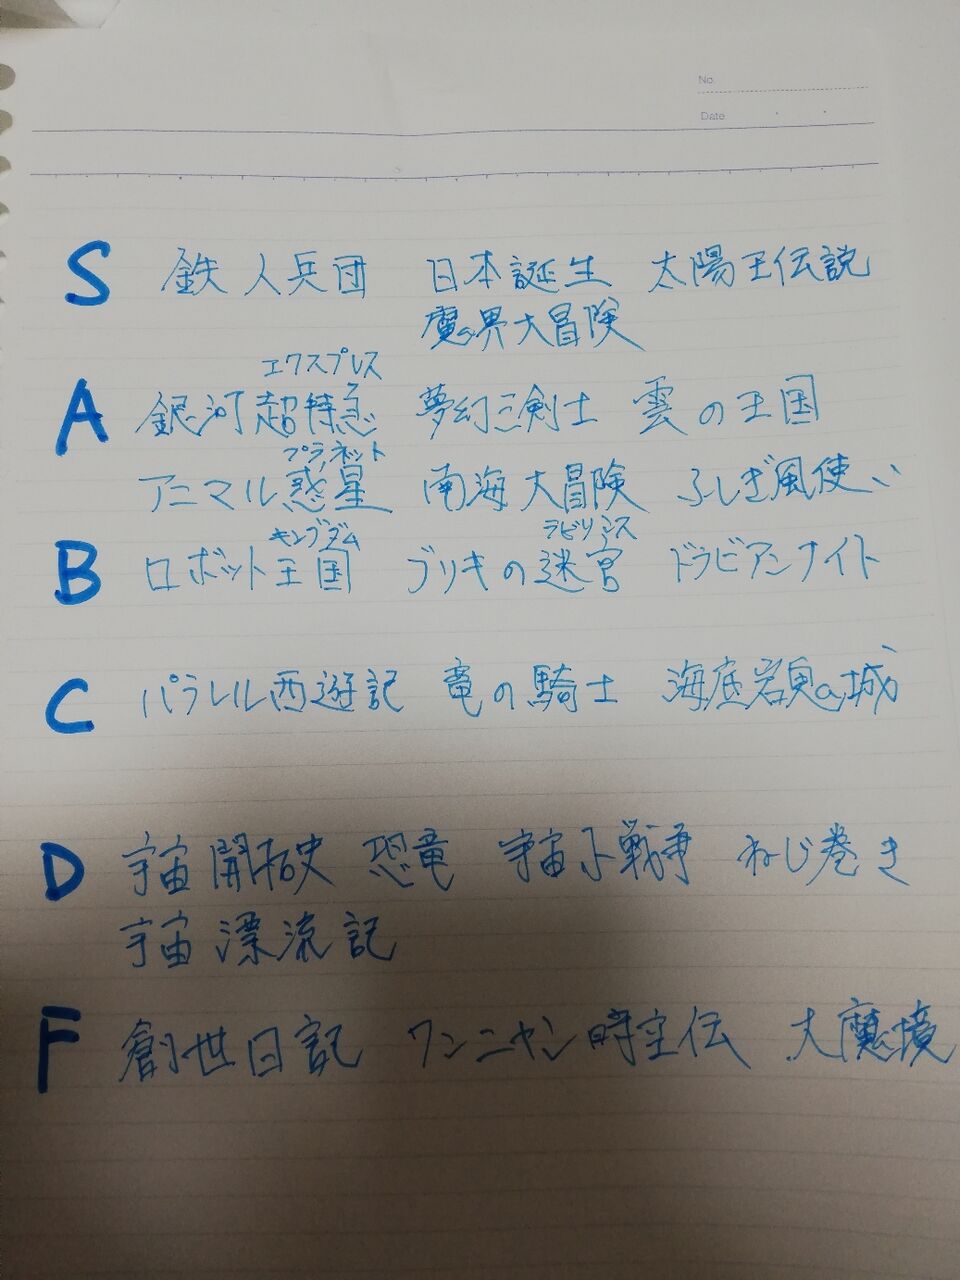 No.
Date
S 鉄人兵団 日本誕生 太陽王伝説
魔界大冒険
エクスプレス
A 銀河超特急 夢幻三剣士 雲の王国
プラネット
アニマル惑星 南海大冒険 ふしぎ風使い
キングダム ラビリンス
B ロボット王国 ブリキの迷宮 ドラビアンナイト
C パラレル西遊記 竜の騎士 海底岩鬼城
D 宇宙開拓史 恐竜 宇宙小戦争 ねじ巻き
宇宙漂流記
F 創世日記 ワンニャン時空伝 大魔境